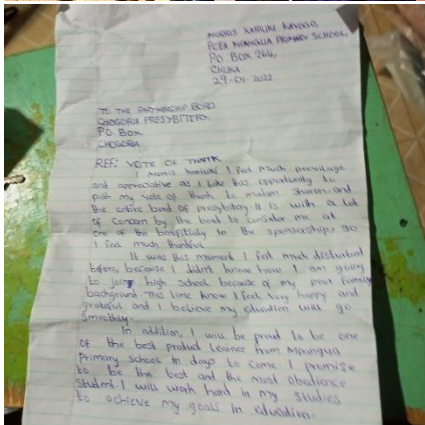 MORRIS KARIUKI
PCEA MPANGUA PRIMARY SCHOOL,
PO BOX 264,
CHUKA
29-04-2022
TO THE PARTNERSHIP BORD
CHOGORIA PRESBYTERY.
P.O. Box
CHOGORIA.
REF: VOTE OF THANK
I morris kariuki I feel much previlage
and appreciative as I take this opportunity to
pass my vote of thank to madam Sharon and
the entire bord of presbytery. It is with a lot
of concern by the bord to consider me at
one of the benefitialy in the sponsorship, so
I feel much thankful
It was this moment I feel much disturbed
before, because I didnt know how I am going
to join high school because of my poor family
background. This time know I feel very happy and
grateful and I believe my education will go
smoothly.
In addition, I will be proud to be one
of the best product learner from Mpangua
primary school in days to come. I promise
to be the best and the most obedience
student. I will work hard in my studies
to achieve my goals in education.